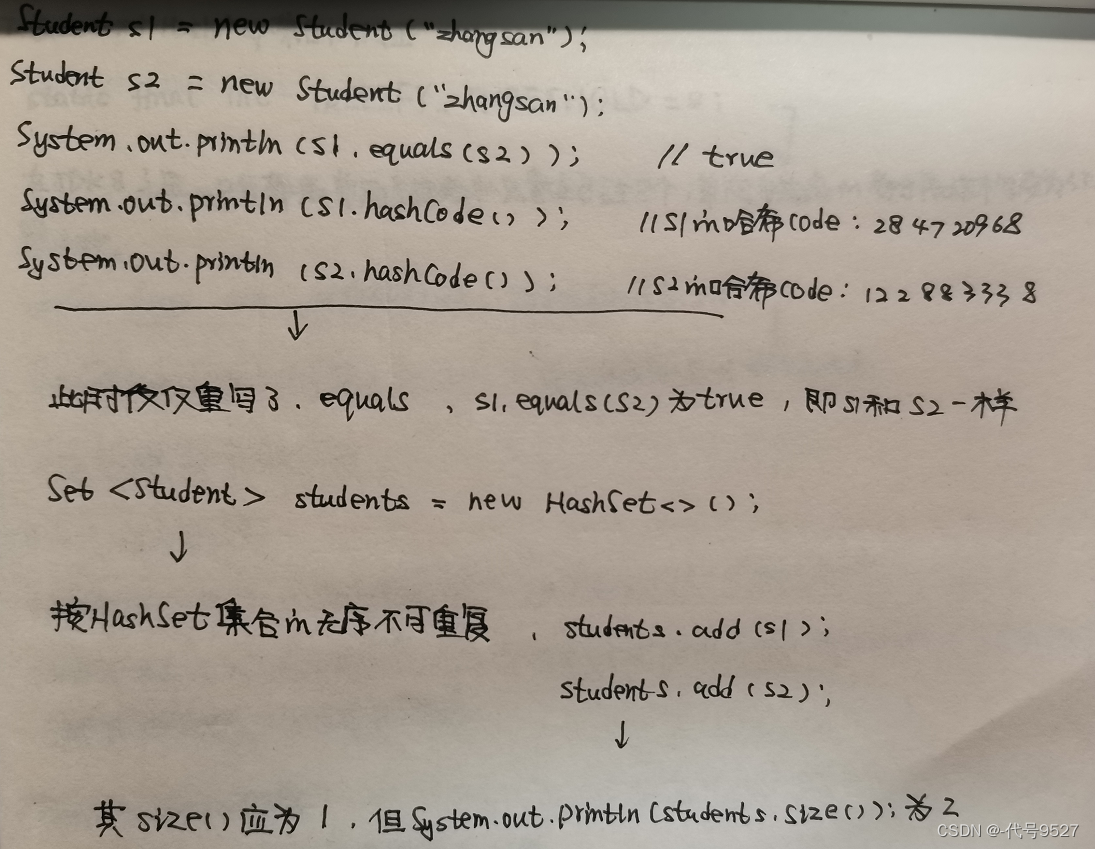 Student s1 = new Student ("zhangsan");
Student s2 = new Student ("zhangsan");
System.out.println (s1.equals(s2)); // true
System.out.println (s1.hashCode()); //s1的哈希code: 284720968
System.out.println (s2.hashCode()); //s2的哈希code: 122883338
此时仅仅重写了、equals、s1.equals(s2)为true,即s1和s2一样
Set <Student> students = new HashSet<>();
按HashSet集合的无序不可重复、students.add(s1);
students.add(s2);
其size()应为1、但System.out.println(students.size());为2
CSDN @-代号9527